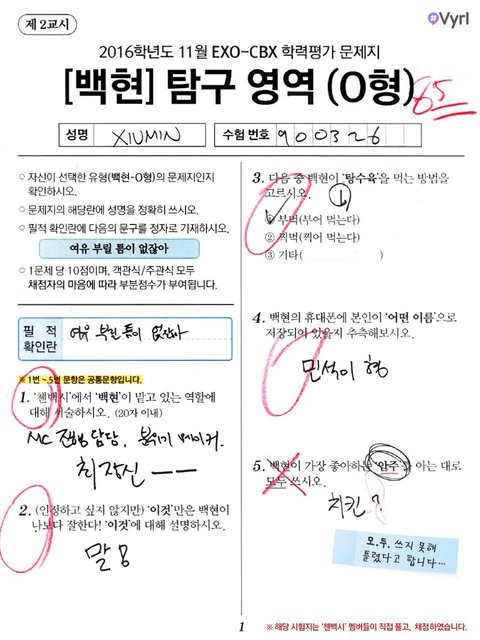 제 2교시
Vyrl
2016학년도 11월 EXO-CBX 학력평가 문제지
[백현] 탐구 영역 (O형)
65
성명 XIUMIN 수험 번호 900326
○ 자신이 선택한 유형(백현-O형)의 문제지인지
확인하시오.
○ 문제지의 해당란에 성명을 정확히 쓰시오.
○ 필적 확인란에 다음의 문구를 정자로 기재하시오.
여유 부릴 틈이 없잖아
○ 1문제 당 10점이며, 객관식/주관식 모두
채점자의 마음에 따라 부분점수가 부여됩니다.
필 적
확인란
여유 부릴 틈이 없잖아
※ 1번~5번 문항은 공통문항입니다.
1. '첸백시'에서 '백현'이 맡고 있는 역할에
대해 서술하시오. (20자 이내)
MC 진행 담당, 분위기 메이커.
최장신 ㅡㅡ
2. (인정하고 싶지 않지만) '이것'만은 백현이
나보다 잘한다! '이것'에 대해 설명하시오.
말빨
3. 다음 중 백현이 '탕수육'을 먹는 방법을
고르시오.
①
① 부먹(부어 먹는다)
② 찍먹(찍어 먹는다)
③ 기타( )
4. 백현의 휴대폰에 본인이 '어떤 이름'으로
저장되어 있을지 추측해보시오.
민석이 형
5. 백현이 가장 좋아하는 '안주'를 아는 대로
모두 쓰시오.
치킨?
모.두. 쓰지 못해
틀렸다고 합니다...
1
※ 해당 시험지는 '첸백시' 멤버들이 직접 풀고, 채점하였습니다.